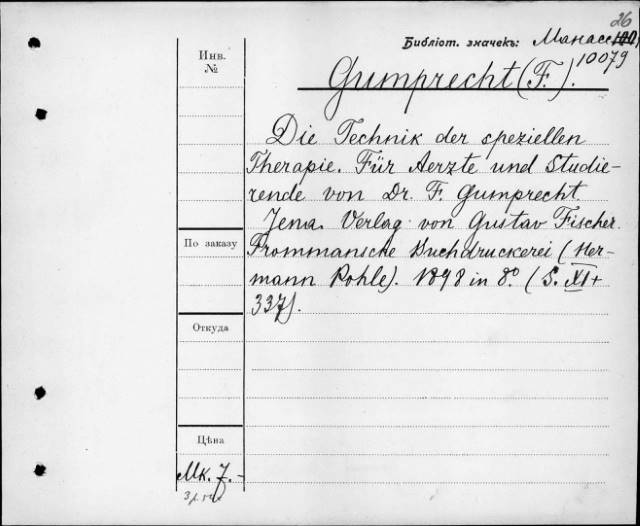 26
Библіот. значекъ: Манасс
10079
Инв.
№
Gumprecht (F.).
Die Technik der speziellen
Therapie. Für Aerzte und Studie-
rende von Dr. F. Gumprecht.
Jena. Verlag von Gustav Fischer.
Frommansche Buchdruckerei (Her-
mann Pohle). 1898 in 8° (S. XI+
337).
По заказу
Откуда
Цѣна
Мк. 7.-